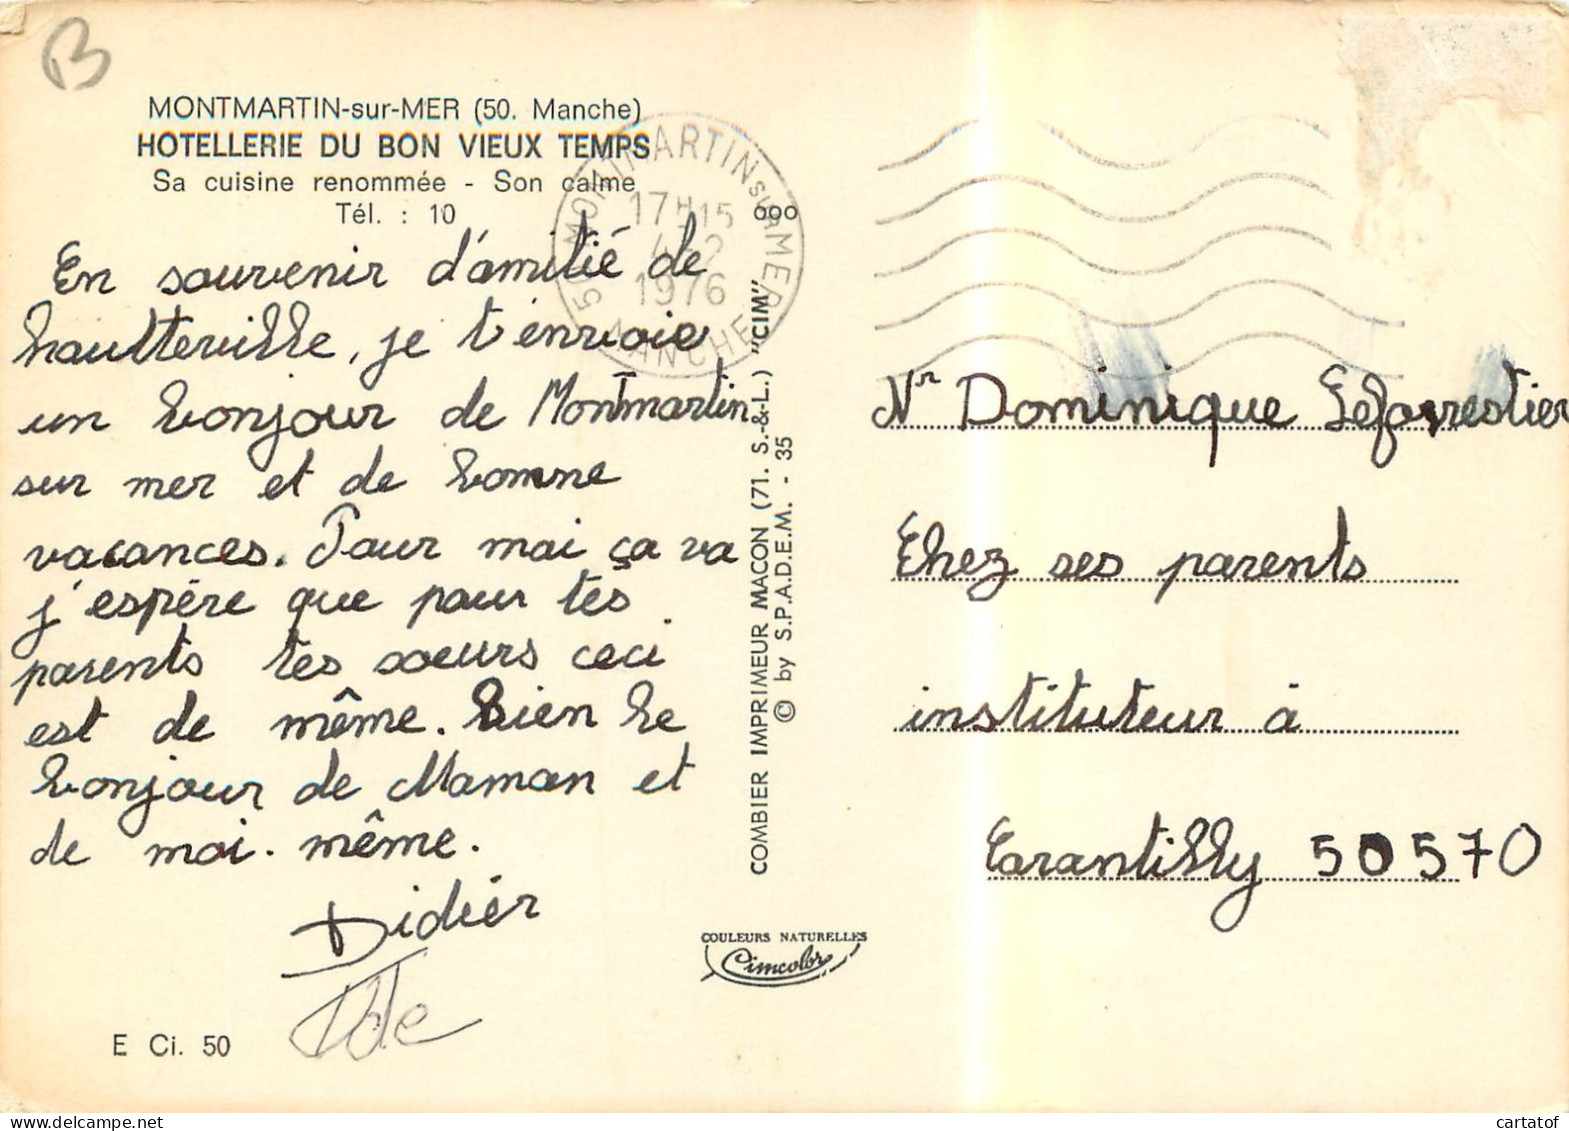 B
MONTMARTIN-sur-MER (50. Manche)
HOTELLERIE DU BON VIEUX TEMPS
Sa cuisine renommée - Son calme
Tél. : 10
En souvenir d'amitié de
hautteville, je t'envoie
un bonjour de Montmartin
sur mer et de bonne
vacances. Pour moi ça va
j'espère que pour tes
parents tes soeurs ceci
est de même. Bien le
bonjour de Maman et
de moi. même.
Didier
E Ci. 50
50 MONTMARTIN sur MER
17H15
4-2
1976
MANCHE
COMBIER IMPRIMEUR MACON (71. S.-&-L.) "CIM"
© by S.P.A.D.E.M. - 35
COULEURS NATURELLES
Cimcolor
Mr Dominique Leforrestier
Chez ses parents
instituteur à
Carantilly 50570
cartatof